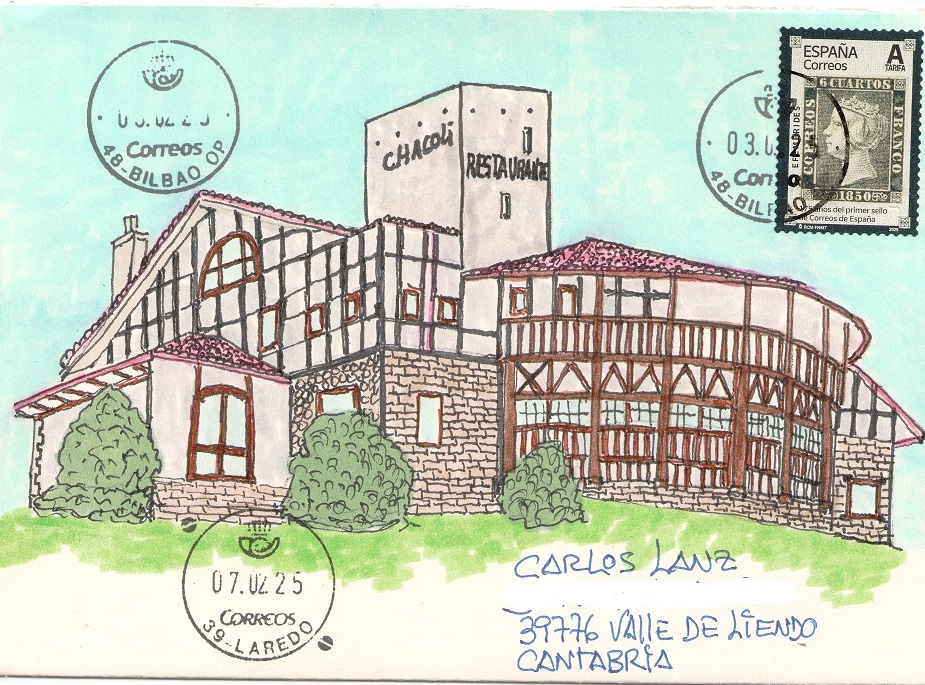 03.02.25
Correos
48-BILBAO OP
ESPAÑA
Correos
A
TARIFA
6 CUARTOS
CORREOS
FRANCO
1850
EFEMÉRIDES
años del primer sello
de Correos de España
RCM-FNMT
2025
03.0
48-BIL
CHACOLÍ
RESTAURANTE
07.02.25
CORREOS
39-LAREDO
CARLOS LANZ
39776 VALLE DE LIENDO
CANTABRIA